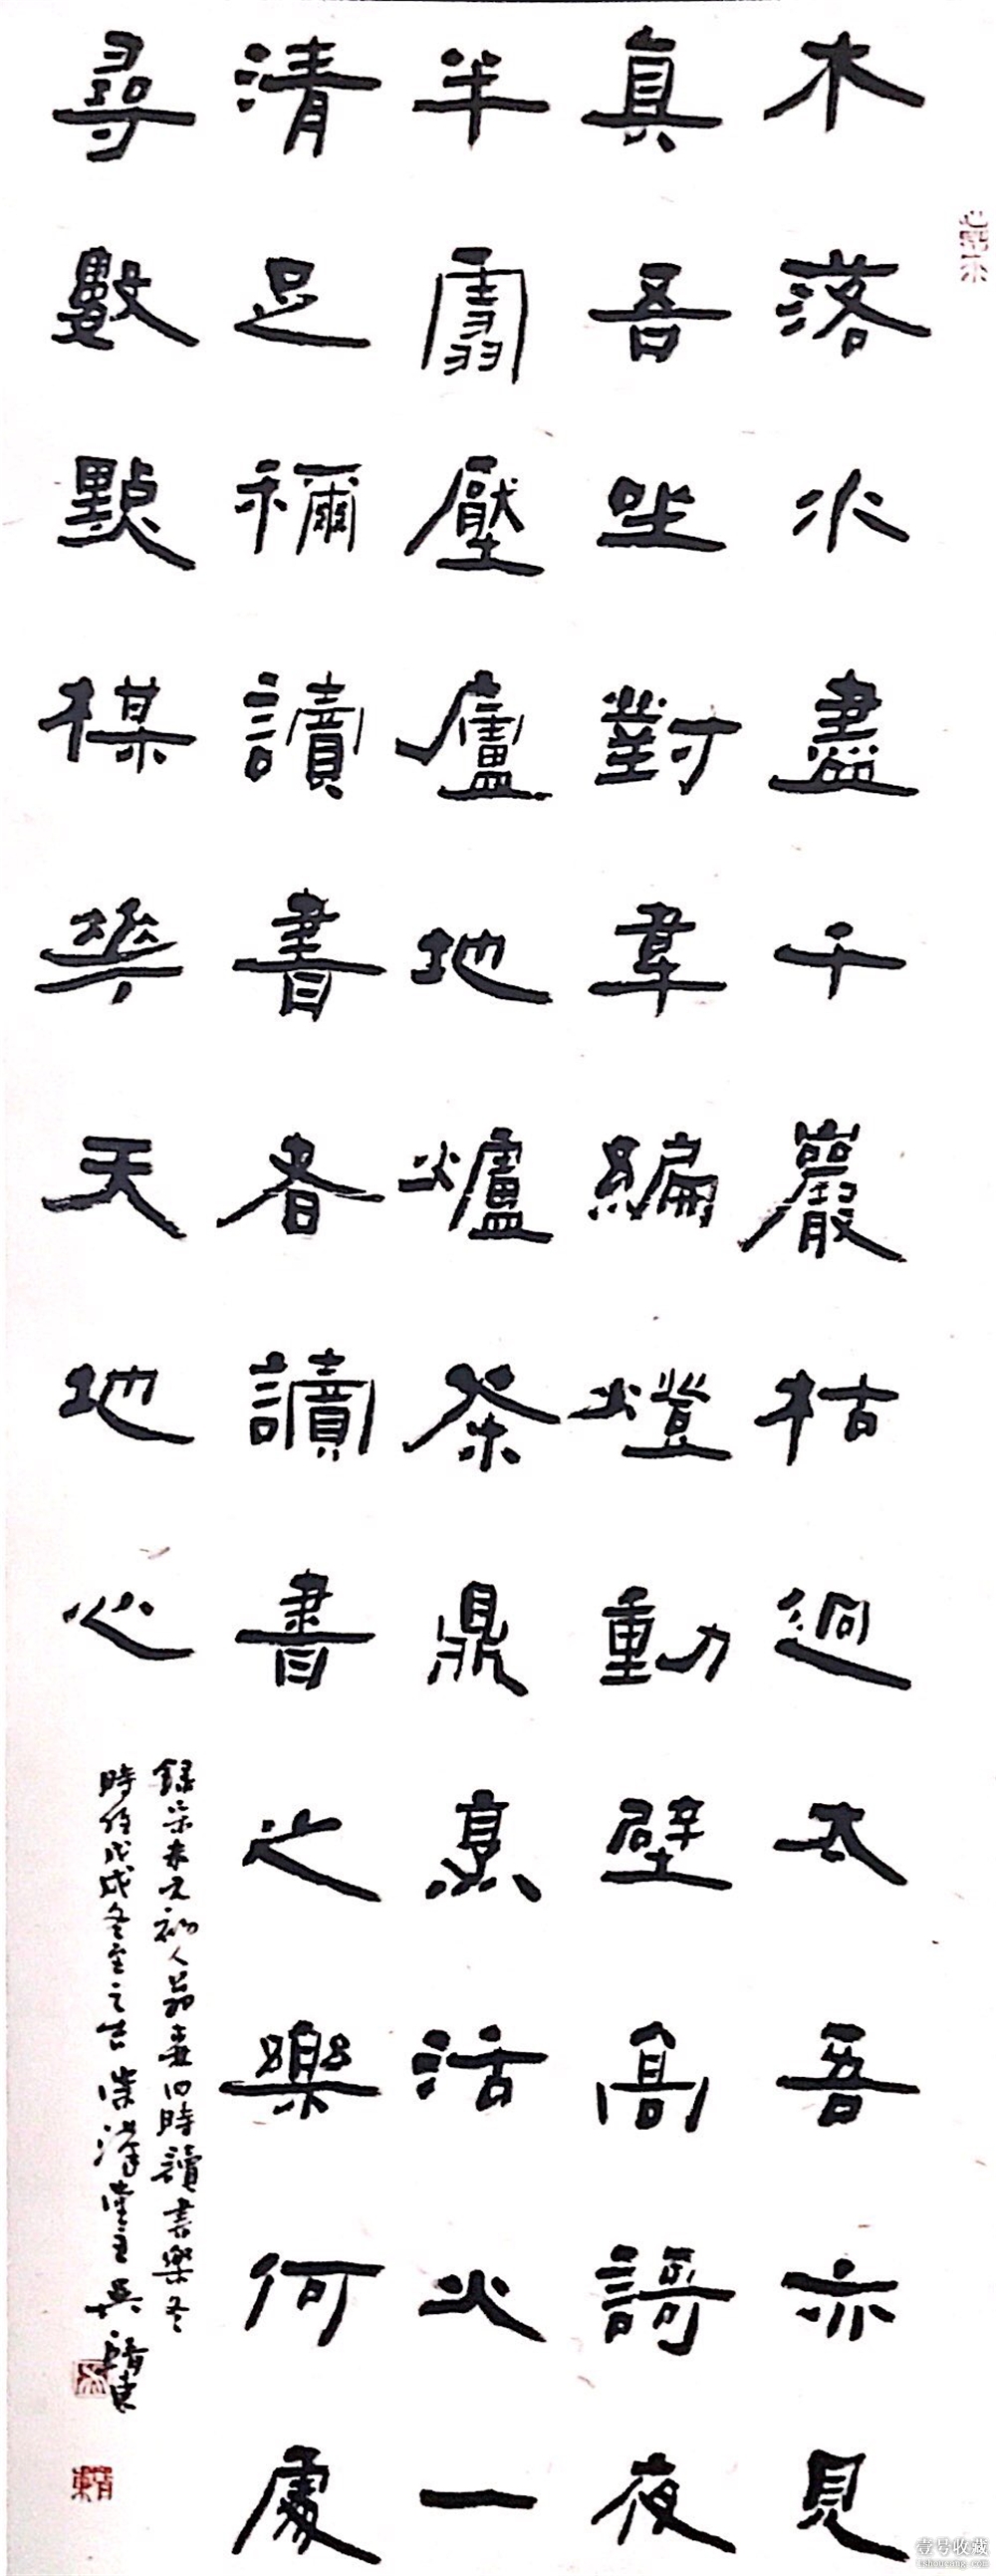 木落水盡千巖枯迥太吾亦見
真吾坐對韋編燈動壁高謌夜
半雪壓廬地爐茶鼎烹活火一
清足穪讀書者讀書之樂何處
尋數點楳華天地心
錄宋末元初人翁森四時讀書樂冬
時值戊戌冬至之吉堂主吳
壹号收藏
1shoucang.com